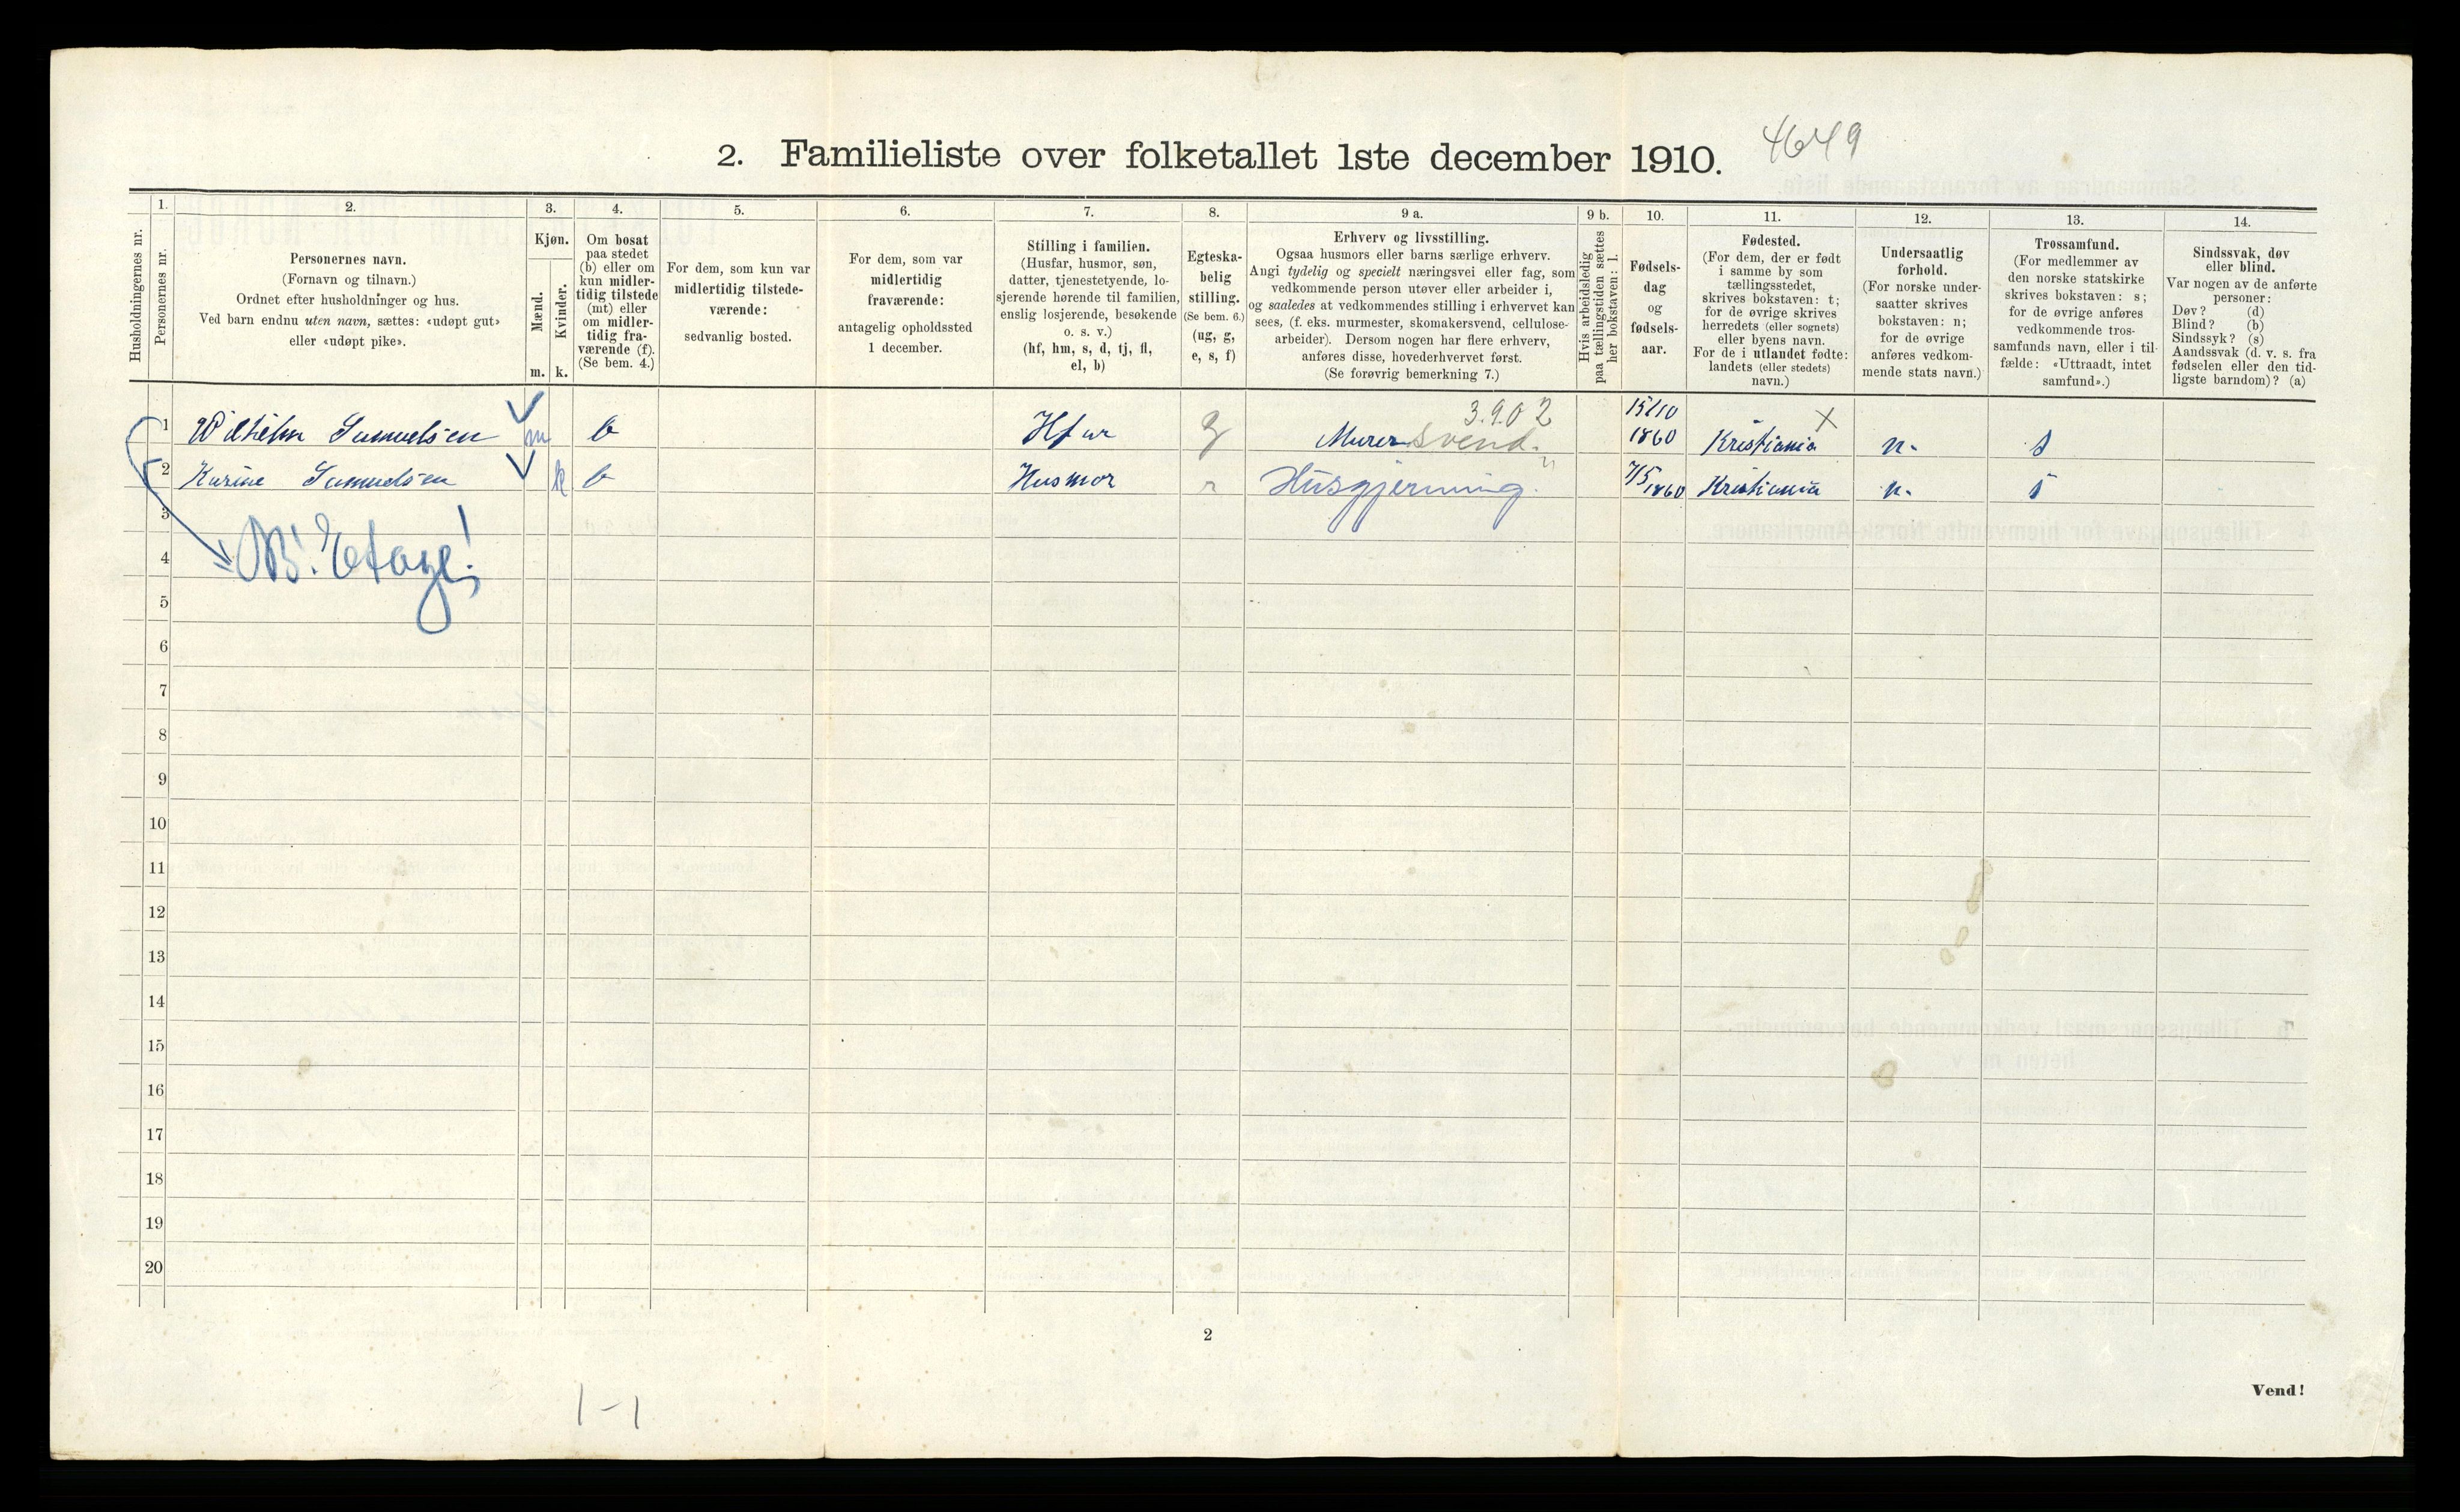 2. Familieliste over folketallet 1ste december 1910. 4649
Husholdningernes nr.
1.
Personernes nr.
2.
Personernes navn.
(Fornavn og tilnavn.)
Ordnet efter husholdninger og hus.
Ved barn endnu uten navn, sættes: «udøpt gut»
eller «udøpt pike».
3.
Kjøn.
Mænd.
Kvinder.
m. k.
4.
Om bosat
paa stedet
(b) eller om
kun midler-
tidig tilstede
(mt) eller
om midler-
tidig fra-
værende (f).
(Se bem. 4.)
5.
For dem, som kun var
midlertidig tilstede-
værende:
sedvanlig bosted.
6.
For dem, som var
midlertidig
fraværende:
antagelig opholdssted
1 december.
7.
Stilling i familien.
(Husfar, husmor, søn,
datter, tjenestetyende, lo-
sjerende hørende til familien,
enslig losjerende, besøkende
o. s. v.)
(hf, hm, s, d, tj, fl,
el, b)
8.
Egteska-
belig
stilling.
(Se bem. 6.)
(ug, g,
e, s, f)
9 a.
Erhverv og livsstilling.
Ogsaa husmors eller barns særlige erhverv.
Angi tydelig og specielt næringsvei eller fag, som
vedkommende person utøver eller arbeider i,
og saaledes at vedkommendes stilling i erhvervet kan
sees, (f. eks. murmester, skomakersvend, cellulose-
arbeider). Dersom nogen har flere erhverv,
anføres disse, hovederhvervet først.
(Se forøvrig bemerkning 7.)
9 b.
Hvis arbeidsledig
paa tællingstiden sættes
her bokstaven: l.
10.
Fødsels-
dag
og
fødsels-
aar.
11.
Fødested.
(For dem, der er født
i samme by som
tællingsstedet,
skrives bokstaven: t;
for de øvrige skrives
herredets (eller sognets)
eller byens navn.
For de i utlandet fødte:
landets (eller stedets)
navn.)
12.
Undersaatlig
forhold.
(For norske under-
saatter skrives
bokstaven: n;
for de øvrige
anføres vedkom-
mende stats navn.)
13.
Trossamfund.
(For medlemmer av
den norske statskirke
skrives bokstaven: s;
for de øvrige anføres
vedkommende tros-
samfunds navn, eller i til-
fælde: «Uttraadt, intet
samfund».)
14.
Sindssvak, døv
eller blind.
Var nogen av de anførte
personer:
Døv? (d)
Blind? (b)
Sindssyk? (s)
Aandssvak (d. v. s. fra
fødselen eller den tid-
ligste barndom)? (a)
3.9.02
1 Wilhelm Samuelsen m b Hfar g Murersvend. 15/10 1860 Kristiania X n. s
2 Karine Samuelsen k b Husmor Husgjerning. 7/5 1860 Kristiania n. s
3
NB! Etage!
4
5
6
7
8
9
10
11
12
13
14
15
16
17
18
19
20
2
Vend!
1-1